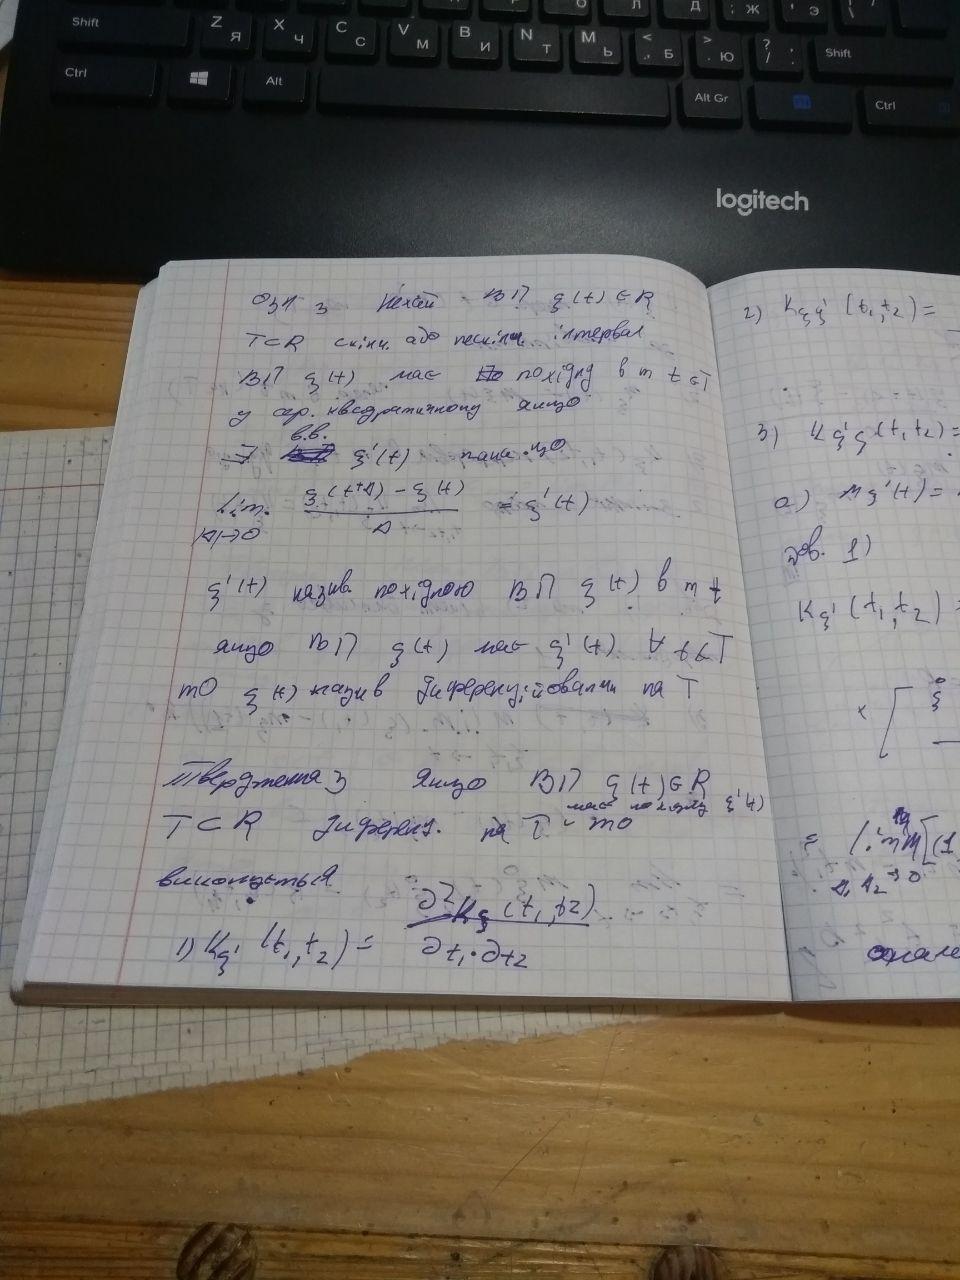 Shift Z Я X Ч C С V М B И N Т M Ь < , Б > . Ю ? / . Shift
Ctrl Alt Alt Gr Ctrl
logitech
Озн 3 Нехай ВП ξ(t) ∈ R
T⊂R скінч. або нескінч. інтервал
ВП ξ(t) має похідну в т t∈T
у сер. квадратичному якщо
∃ в.в. ξ'(t) така що
l.i.m. |Δ|→0 (ξ(t+Δ) - ξ(t)) / Δ = ξ'(t)
ξ'(t) назив. похідною ВП ξ(t) в т t
якщо ВП ξ(t) має ξ'(t) ∀ t∈T
то ξ(t) назив диференційовалим на T
Твердження 3 Якщо ВП ξ(t)∈R
має похідну ξ'(t)
T⊂R диференц. на T - то
виконується
1) Kξ' (t₁, t₂) = ∂²Kξ (t₁, t₂) / ∂t₁·∂t₂
2) Kξξ' (t₁, t₂) =
3) Kξ'ξ (t₁, t₂) =
а) Mξ'(t) =
Дов. 1)
Kξ' (t₁, t₂) =
× [ ξ
= lim M[(
Δ₁ Δ₂→0